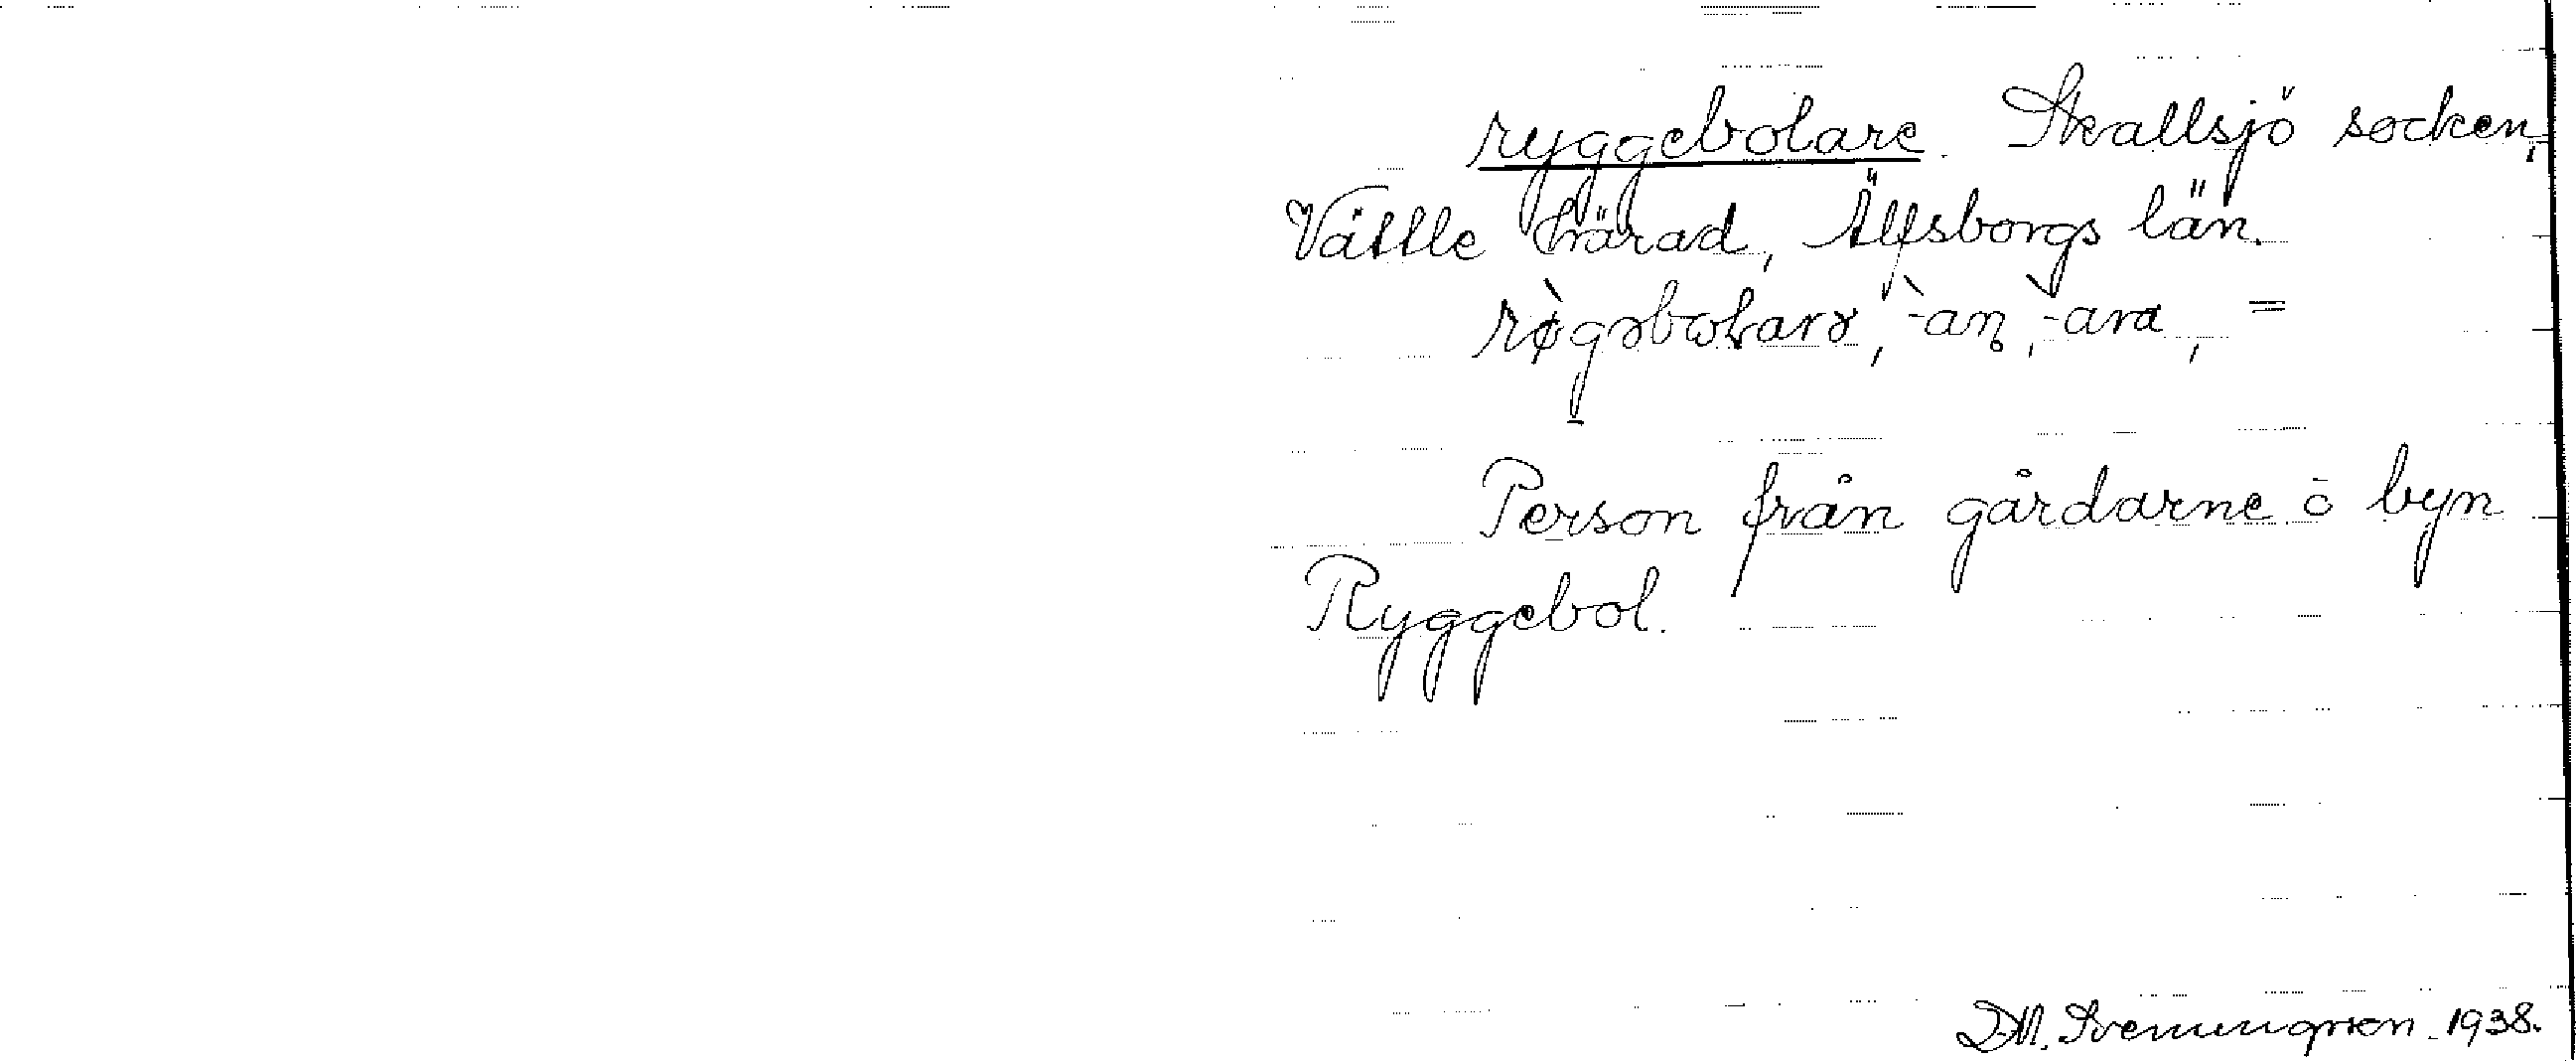 ryggebolare. Skallsjö socken,
Vättle härad, Älfsborgs län.
røgəbωɫarə, -an̥, -ara, =
Person från gårdarne i byn
Ryggebol.
D.M. Svenungsson 1938.